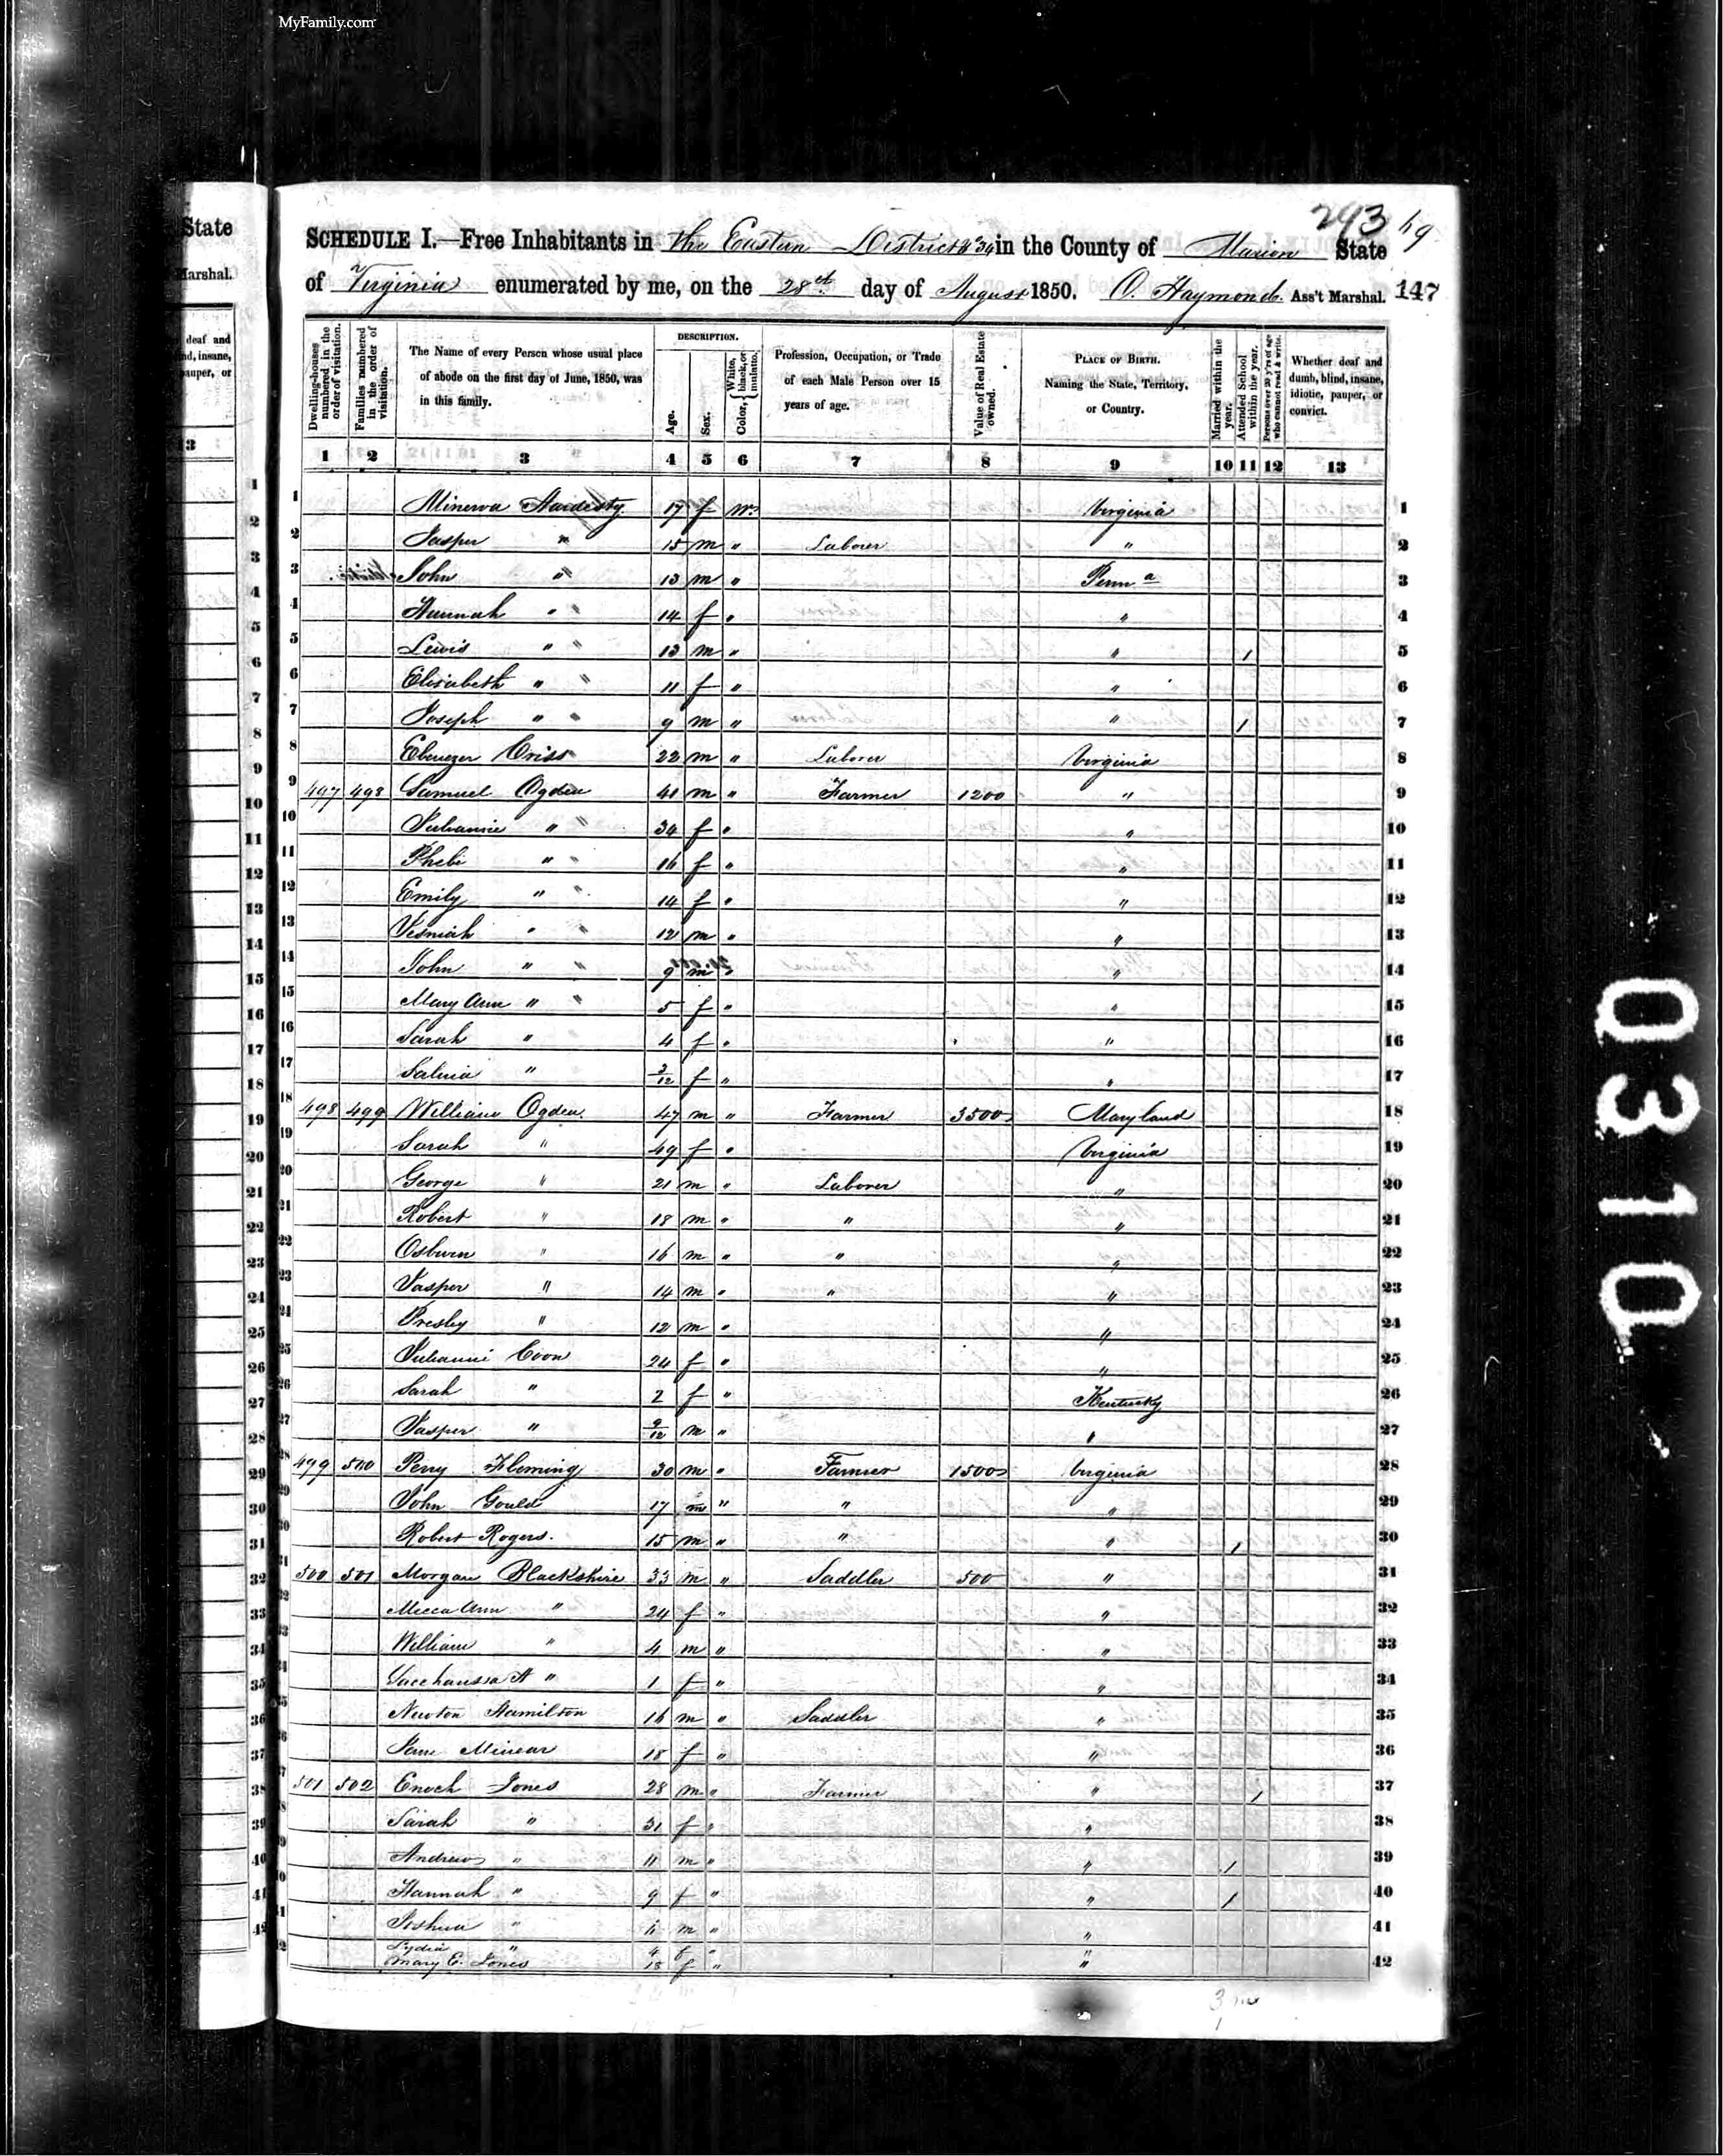 MyFamily.com
243 69
State
SCHEDULE I.—Free Inhabitants in the Eastern District No 34 in the County of Marion State
Marshal.
of Virginia enumerated by me, on the 28th day of August 1850. O. Haymond Ass't Marshal. 147
deaf and
insane,
pauper, or
13
Dwelling-houses numbered in the order of visitation.
Families numbered in the order of visitation.
The Name of every Person whose usual place of abode on the first day of June, 1850, was in this family.
DESCRIPTION.
Age.
Sex.
Color, { White, black, or mulatto.
Profession, Occupation, or Trade of each Male Person over 15 years of age.
Value of Real Estate owned.
PLACE OF BIRTH. Naming the State, Territory, or Country.
Married within the year.
Attended School within the year.
Persons over 20 y'rs of age who cannot read & write.
Whether deaf and dumb, blind, insane, idiotic, pauper, or convict.
1 2 3 4 5 6 7 8 9 10 11 12 13
1 Minerva Hardesty 17 f W. Virginia 1
2 Jasper " 15 m " Laborer " 2
3 John " 13 m " Penn a 3
4 Hannah " 14 f " " 4
5 Lewis " 13 m " " 1 5
6 Elisabeth " 11 f " " 6
7 Joseph " 9 m " " 1 7
8 Ebenezer Criss 22 m " Laborer Virginia 8
9 497 498 Samuel Ogden 41 m " Farmer 1200 " 9
10 " 34 f " " 10
11 Phebe " 16 f " " 11
12 Emily " 14 f " " 12
13 " 12 m " " 13
14 John " 9 m " " 14
15 Mary Ann " 5 f " " 15
16 Sarah " 4 f " " 16
17 " 3/12 f " " 17
18 498 499 William Ogden 47 m " Farmer 3500 Maryland 18
19 Sarah " 49 f " Virginia 19
20 George " 21 m " Laborer " 20
21 Robert " 18 m " " " 21
22 Osburn " 16 m " " " 22
23 Jasper " 14 m " " " 23
24 Presley " 12 m " " 24
25 Coon 24 f " " 25
26 Sarah " 2 f " Kentucky 26
27 Jasper " 9/12 m " " 27
28 499 500 Perry Fleming 30 m " Farmer 1500 Virginia 28
29 John Gould 17 m " " " 29
30 Robert Rogers. 15 m " " " 1 30
31 500 501 Morgan Blackshire 33 m " Saddler 500 " 31
32 Ann " 24 f " " 32
33 William " 4 m " " 33
34 " 1 f " " 34
35 Newton Hamilton 16 m " Saddler " 35
36 Jane Minear 18 f " " 36
37 501 502 Enoch Jones 28 m " Farmer " 1 37
38 Sarah " 31 f " " 38
39 Andrew " 11 m " " 1 39
40 Hannah " 9 f " " 1 40
41 Joshua " m " " 41
Lydia " 4 f " "
42 Mary E. Jones 18 f " " 42
0310